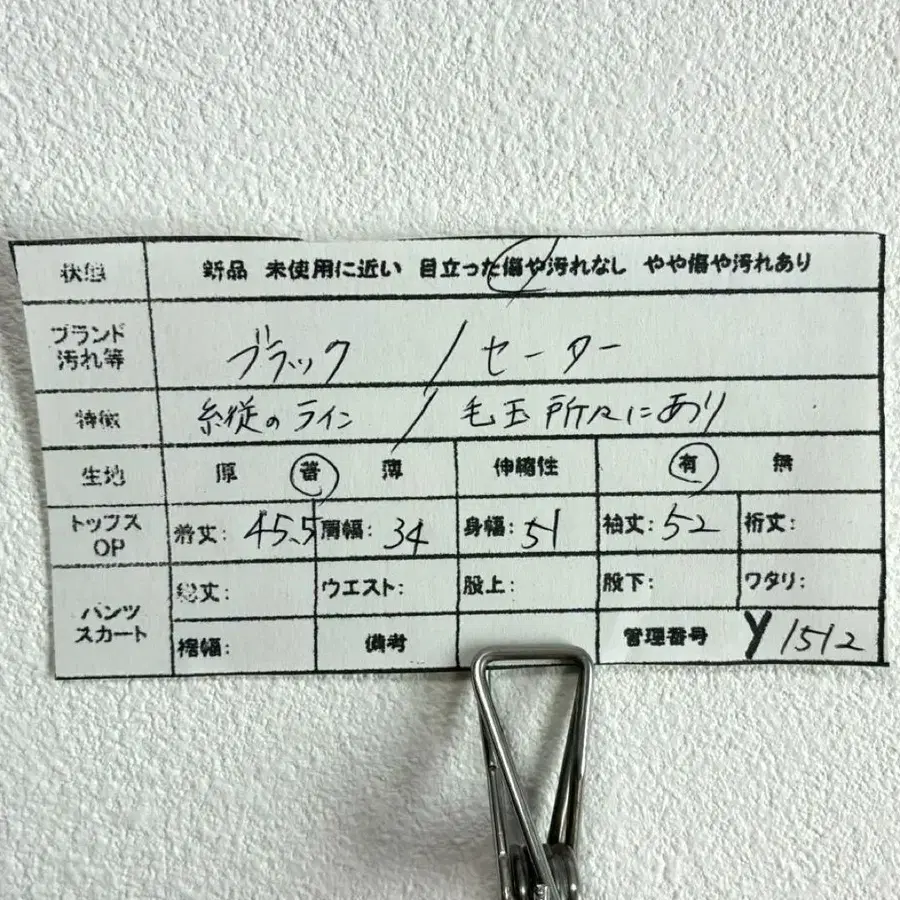 状態 新品 未使用に近い 目立った傷や汚れなし やや傷や汚れあり
ブランド
汚れ等 ブラック / セーター
特徴 糸従のライン / 毛玉所々にあり
生地 厚 普 薄 伸縮性 有 無
トップス
OP 着丈: 45.5 肩幅: 34 身幅: 51 袖丈: 52 裄丈:
パンツ
スカート 総丈: ウエスト: 股上: 股下: ワタリ:
裾幅: 備考 管理番号 Y1512